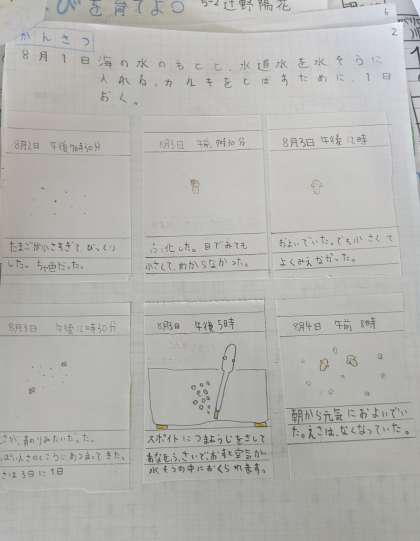 びを育てよ○
5-2 辻野陽花
2
かんさつ
8月1日 海の水のもとと、水道水を水そうに
入れる。カルキをとばすために、1日
おく。
8月2日 午後7時30分
たまごが小さすぎて、びっくり
した。ちゃ色だった。
8月3日 午前7時30分
ふ化した。目でみても
小さくて、わからなかった。
8月3日 午後12時
およいでいた。でも小さくて
よくみえなかった。
8月3日 午後12時30分
8月3日 午後5時
スポイトにつまようじをさして
あなをふさいでおすと空気が
水そうの中におくられます。
8月4日 午前8時
朝から元気におよいでい
た。えさは、なくなっていた。
は3日に1日